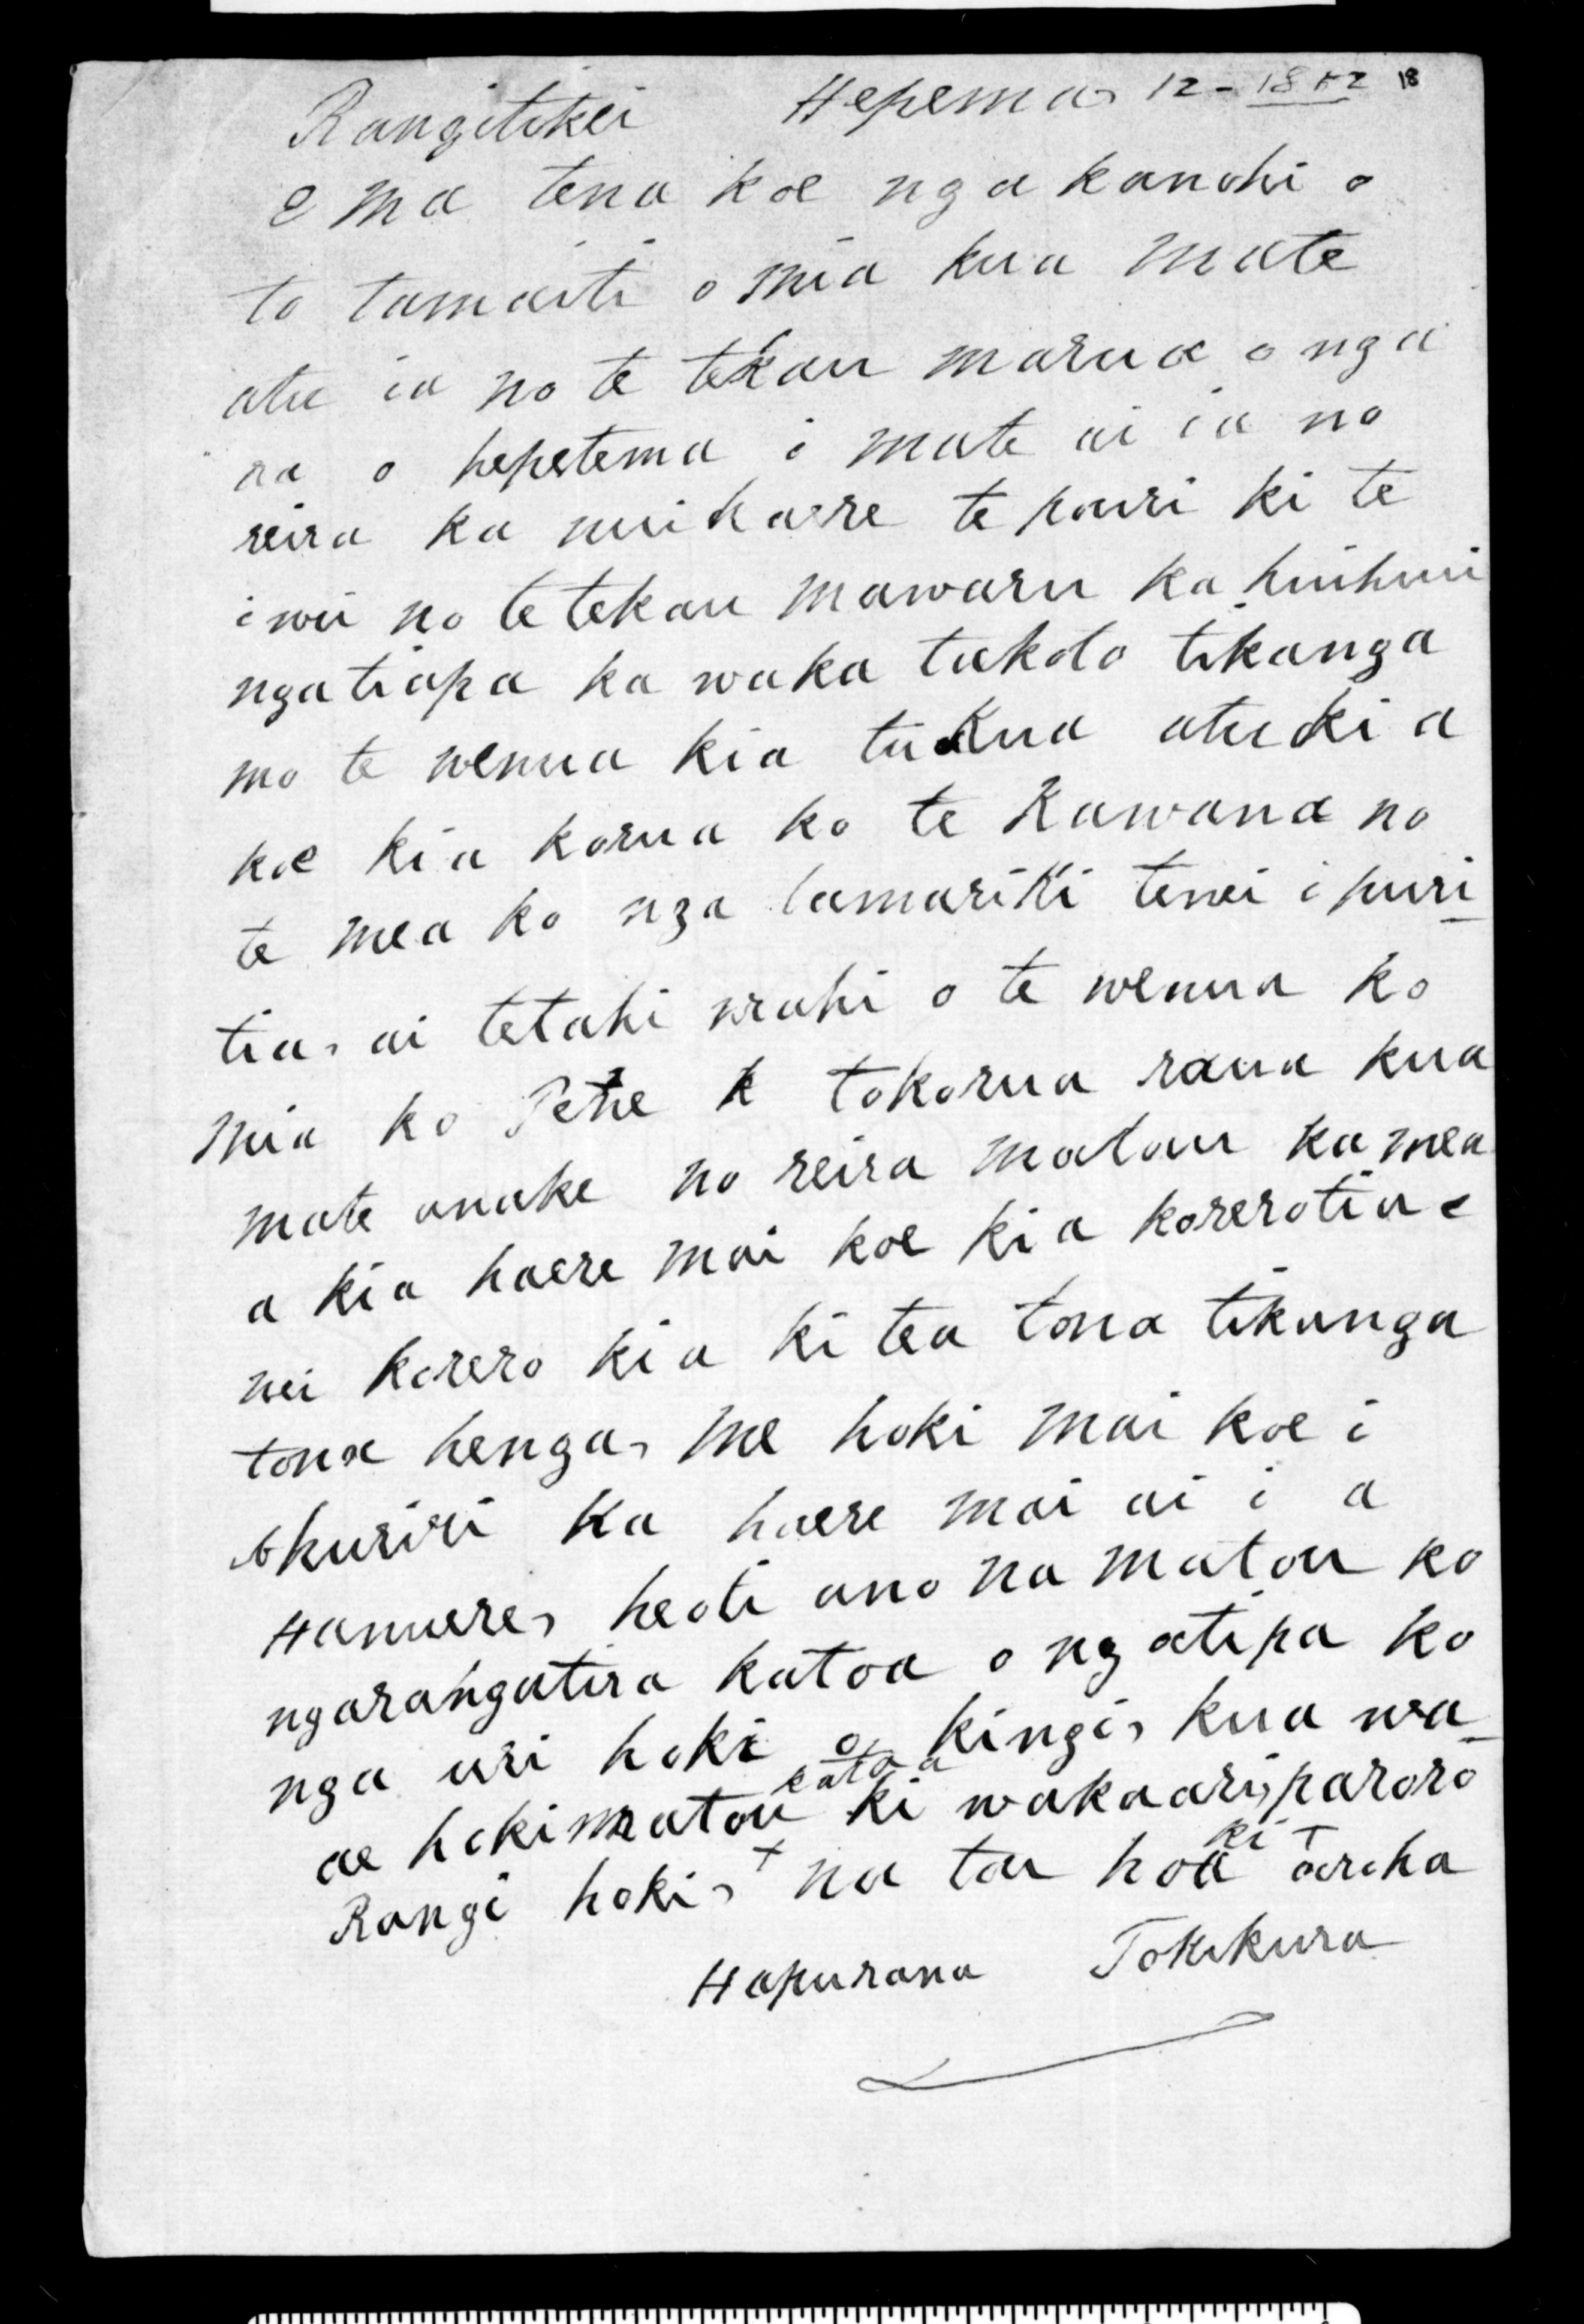 Rangitikei Hepema, 12 - 1852 18
e Ma tena koe nga kanohi o
to tamaiti o mia kua mate
atu ia no te tekau marua o nga
ra o hepetema i mate ai ia no
reira ka nui haere te pouri ki te
iwi no te tekau mawaru ka huihui
ngatiapa ka waka takoto tikanga
mo te wenua kia tukua atu ki a
koe kia korua ko te Kawana no
te mea ko nga tamariki tenei i puri-
tia, ai tetahi wahi o te wenua ko
mia ko Pehe tokorua raua kua
mate anake no reira matau ka mea
a kia haere mai koe kia korerotia e
nei korero kia kitea tona tikanga
tona henga, me hoki mai koe i
akuriri ka haere mai ai i a
Hamuere, heoti ano na matou ko
ngarangatira katoa o ngatipa ko
nga uri hoki o kingi, kua wa-
ae hoki matou katoa ki wakaari, paroro
Rangi hoki, + na tau hoa ki T aroha
Hapurana Tohikura